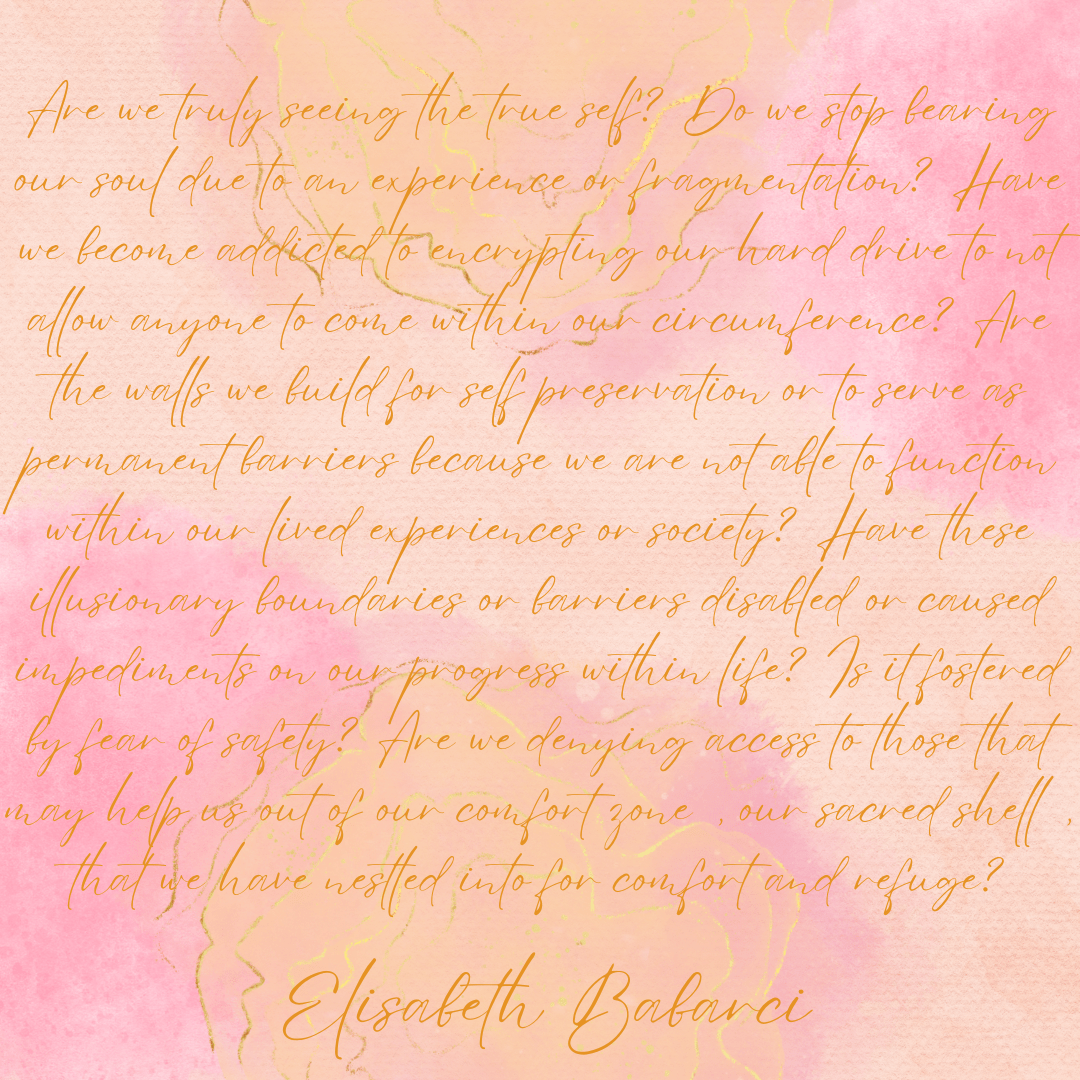 Are we truly seeing the true self? Do we stop bearing
our soul due to an experience or fragmentation? Have
we become addicted to encrypting our hard drive to not
allow anyone to come within our circumference? Are
the walls we build for self preservation or to serve as
permanent barriers because we are not able to function
within our lived experiences or society? Have these
illusionary boundaries or barriers disabled or caused
impediments on our progress within life? Is it fostered
by fear of safety? Are we denying access to those that
may help us out of our comfort zone , our sacred shell ,
that we have nestled into for comfort and refuge?
Elisabeth Babarci